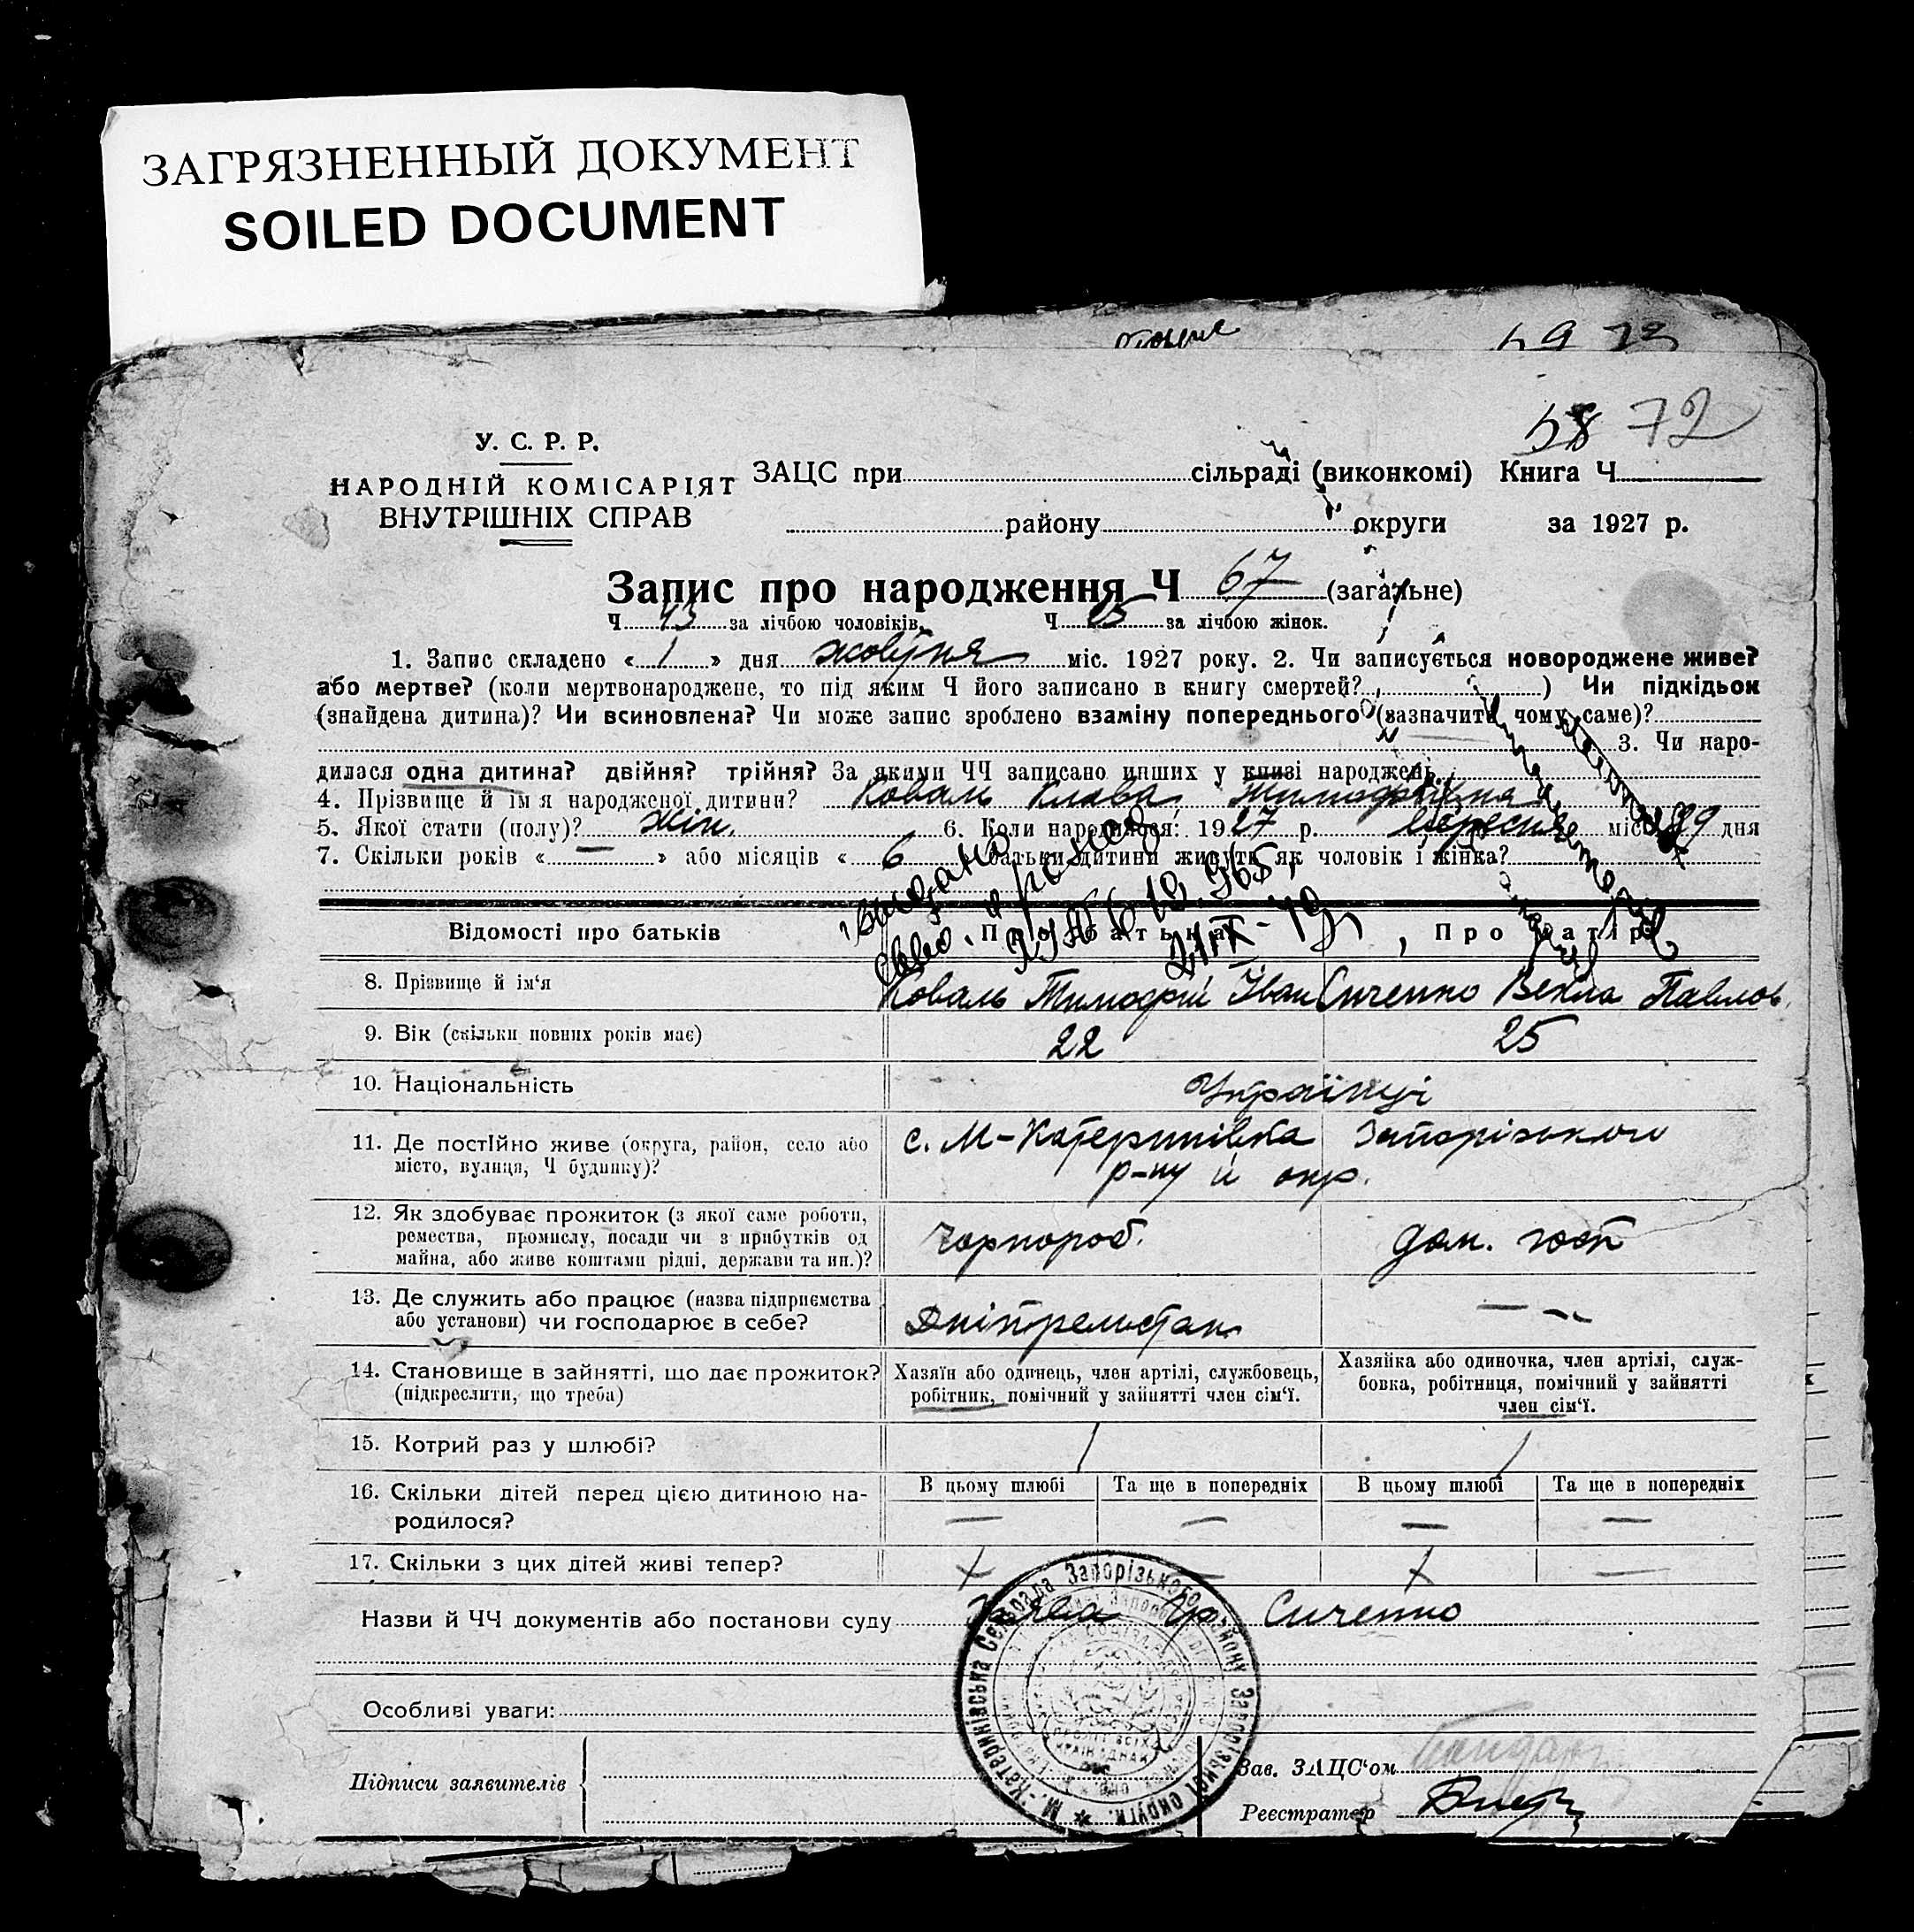 ЗАГРЯЗНЕННЫЙ ДОКУМЕНТ
SOILED DOCUMENT
58 72
У. С. Р. Р.
НАРОДНІЙ КОМІСАРІЯТ
ВНУТРІШНІХ СПРАВ
ЗАЦС при сільраді (виконкомі) Книга Ч.
району округи за 1927 р.
Запис про народження Ч 67 (загальне)
Ч 43 за лічбою чоловіків. Ч за лічбою жінок.
1. Запис складено « 1 » дня жовтня міс. 1927 року. 2. Чи записується новороджене живе?
або мертве? (коли мертвонароджене, то під яким Ч його записано в книгу смертей? ) Чи підкідьок
(знайдена дитина)? Чи всиновлена? Чи може запис зроблено взаміну попереднього (зазначити чому саме)?
3. Чи наро-
дилася одна дитина? двійня? трійня? За якими ЧЧ записано инших у книзі народжень
4. Прізвище й ім'я народженої дитини? Коваль Клава Тимофіївна
5. Якої стати (полу)? жін. 6. Коли народилося: 1927 р. вересня міс. 29 дня
7. Скільки років « — » або місяців « 6 батьки дитини живуть як чоловік і жінка?
Відомості про батьків Про батька Про матір
8. Прізвище й ім'я Коваль Тимофій Іван Сиченко Векла Павлов.
9. Вік (скільки повних років має) 22 25
10. Національність Українці
11. Де постІйно живе (округа, район, село або
місто, вулиця, Ч будинку)?
с. М-Катеринівка Запорізького
р-ну й окр.
12. Як здобуває прожиток (з якої саме роботи,
ремества, промислу, посади чи з прибутків од
майна, або живе коштами рідні, держави та ин.)?
чорнороб. дом. госп
13. Де служить або працює (назва підприємства
або установи) чи господарює в себе?
Дніпрельстан — —
14. Становище в зайнятті, що дає прожиток?
(підкреслити, що треба)
Хазяїн або одинець, член артілі, службовець,
робітник, помічний у зайнятті член сім'ї.
Хазяйка або одиночка, член артілі, служ-
бовка, робітниця, помічний у зайнятті
член сім'ї.
15. Котрий раз у шлюбі? 1 1
16. Скільки дітей перед цією дитиною на-
родилося?
В цьому шлюбі Та ще в попередніх В цьому шлюбі Та ще в попередніх
— — — —
17. Скільки з цих дітей живі тепер?
Назви й ЧЧ документів або постанови суду Заява гр Сиченко
Особливі уваги:
Підписи заявителів
Зав. ЗАЦС'ом
Реєстратор
М.-Катеринівська Сельрада Запорізького району Запорізької округи